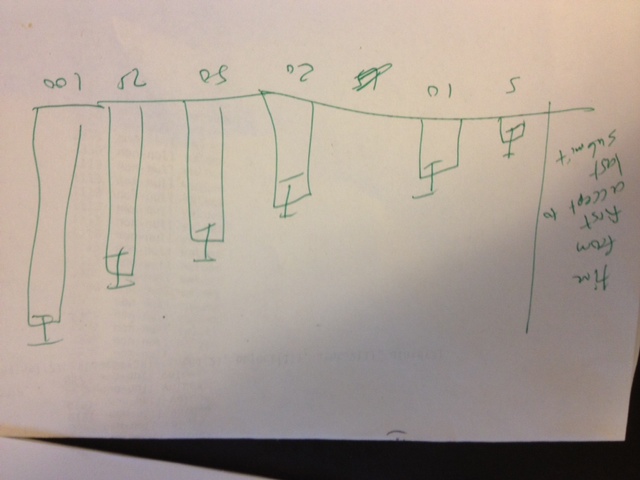 time
from
first
accept to
last
submit
5
10
20
50
75
100